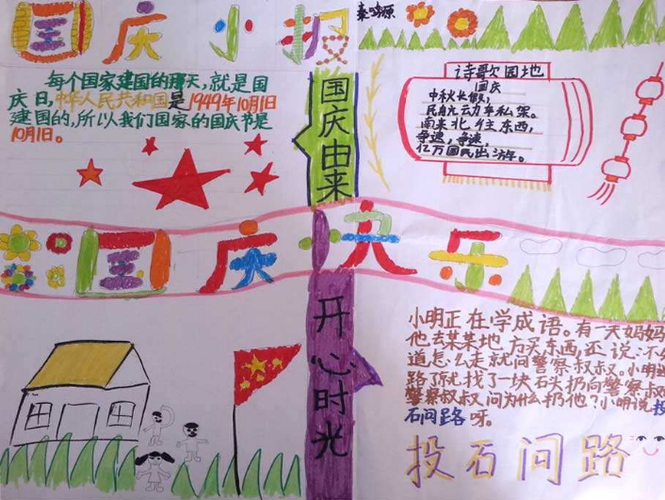 国庆小报
每个国家建国的那天,就是国
庆日,中华人民共和国是1949年10月1日
建国的,所以我们国家的国庆节是
10月1日。
国庆由来
诗歌园地
国庆
中秋长假,
民航动车私架。
南来北往东西,
争速,争速,
亿万国民出游。
国庆快乐
开心时光
小明正在学成语。有一天妈妈
他去某某地方买东西,还说:不
道怎么走就问警察叔叔。小明迷
路了就找了一块石头扔向警察叔
警察叔叔问为什么扔他?小明说投
石问路呀。
投石问路